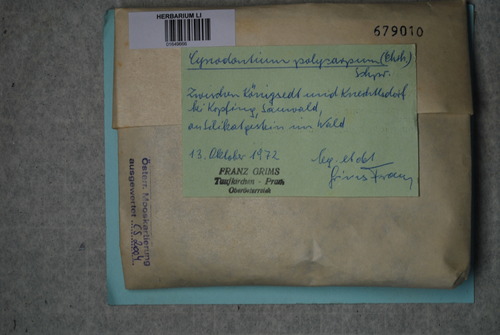 HERBARIUM LI
679010
Cynodontium polycarpum (Ehrh.)
Schpr.
Zwischen Königsedt und Knechtlsdorf
bei Kopfing, Sauwald,
an Silikatgestein im Wald
13. Oktober 1972
leg. et det.
Grims Franz
FRANZ GRIMS
Taufkirchen - Pram
Oberösterreich
Österr. Mooskartierung
ausgewertet